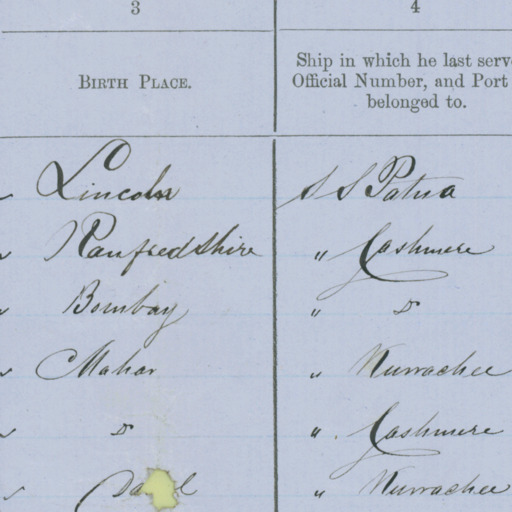 3 4
BIRTH PLACE. Ship in which he last serv
Official Number, and Port
belonged to.
Lincoln S S Patna
Ranfredshire " Cashmere
Bombay " Do
Mahar " Kurrachee
Do " Cashmere
" Kurrachee